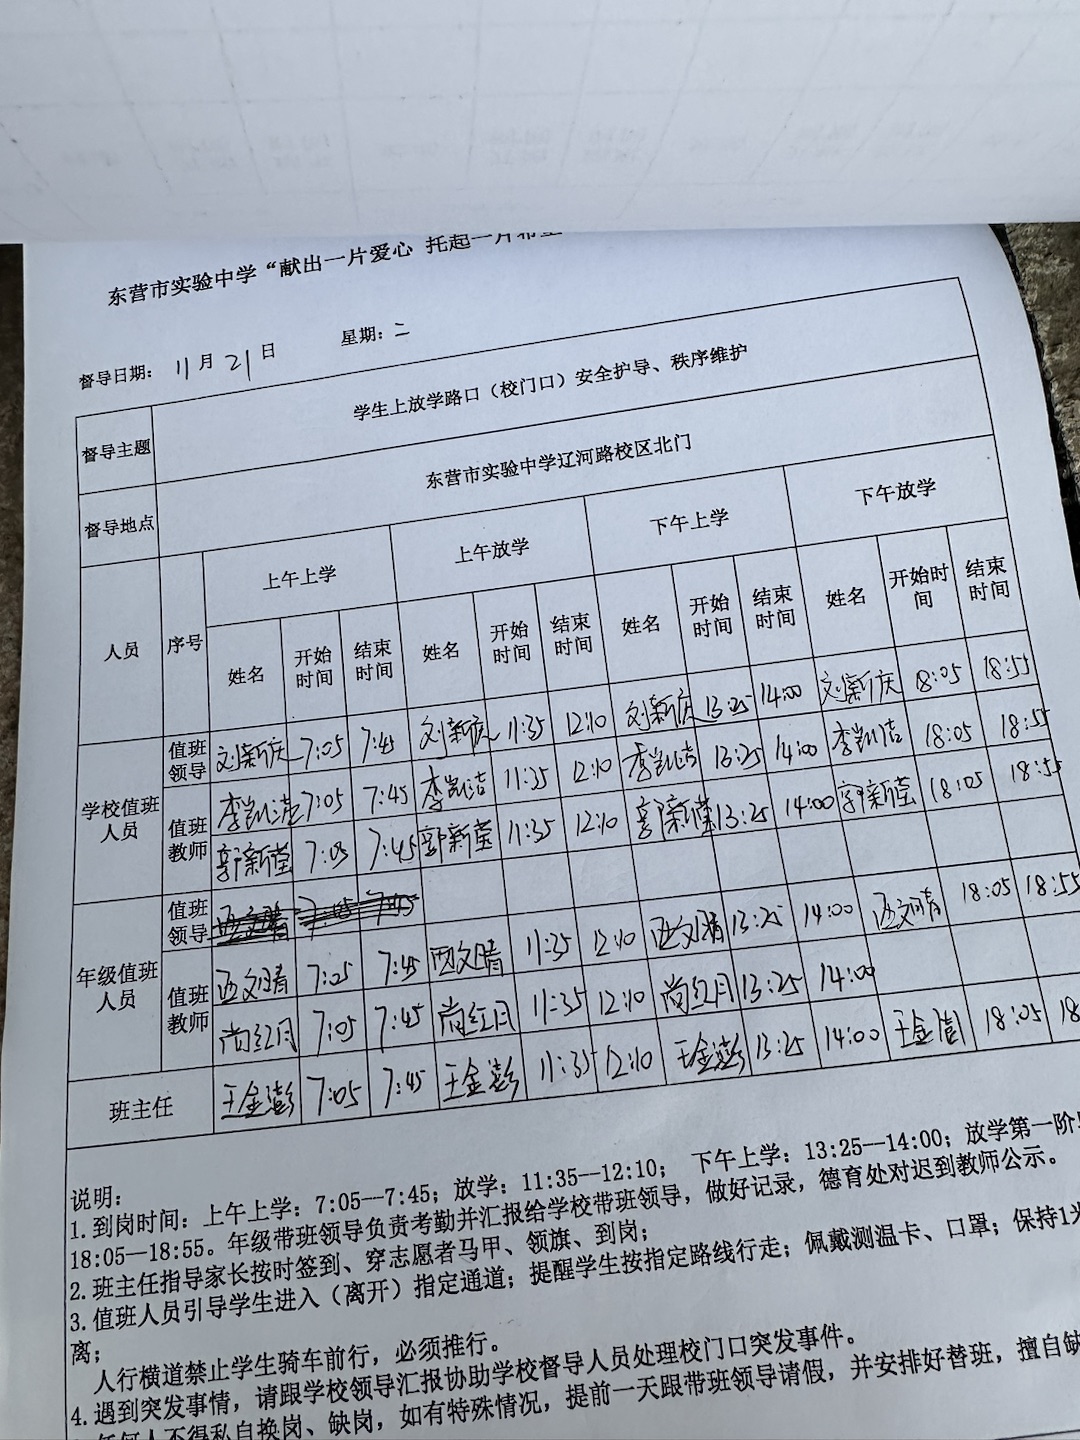 东营市实验中学“献出一片爱心 托起一片希望
督导日期： 11月 21日 星期：二
督导主题 学生上放学路口（校门口）安全护导、秩序维护
督导地点 东营市实验中学辽河路校区北门
人员 序号 上午上学 上午放学 下午上学 下午放学
姓名 开始时间 结束时间 姓名 开始时间 结束时间 姓名 开始时间 结束时间 姓名 开始时间 结束时间
学校值班人员 值班领导 刘新庆 7:05 7:45 刘新庆 11:35 12:10 刘新庆 13:25 14:00 刘新庆 18:05 18:55
值班教师 李凯洁 7:05 7:45 李凯洁 11:35 12:10 李凯洁 13:25 14:00 李凯洁 18:05 18:55
郭新莹 7:05 7:45 郭新莹 11:35 12:10 郭新莹 13:25 14:00 郭新莹 18:05 18:55
年级值班人员 值班领导 7:05 7:45
值班教师 西文晴 7:05 7:45 西文晴 11:35 12:10 西文晴 13:25 14:00 西文晴 18:05 18:55
尚红月 7:05 7:45 尚红月 11:35 12:10 尚红月 13:25 14:00
班主任 王金澎 7:05 7:45 王金澎 11:35 12:10 王金澎 13:25 14:00 王金澎 18:05 18
说明：
1.到岗时间：上午上学：7:05—7:45；放学：11:35—12:10； 下午上学：13:25—14:00；放学第一阶
18:05—18:55。年级带班领导负责考勤并汇报给学校带班领导，做好记录，德育处对迟到教师公示。
2.班主任指导家长按时签到、穿志愿者马甲、领旗、到岗；
3.值班人员引导学生进入（离开）指定通道；提醒学生按指定路线行走；佩戴测温卡、口罩；保持1米
离；
人行横道禁止学生骑车前行，必须推行。
4.遇到突发事情，请跟学校领导汇报协助学校督导人员处理校门口突发事件。
任何人不得私自换岗、缺岗，如有特殊情况，提前一天跟带班领导请假，并安排好替班，擅自缺